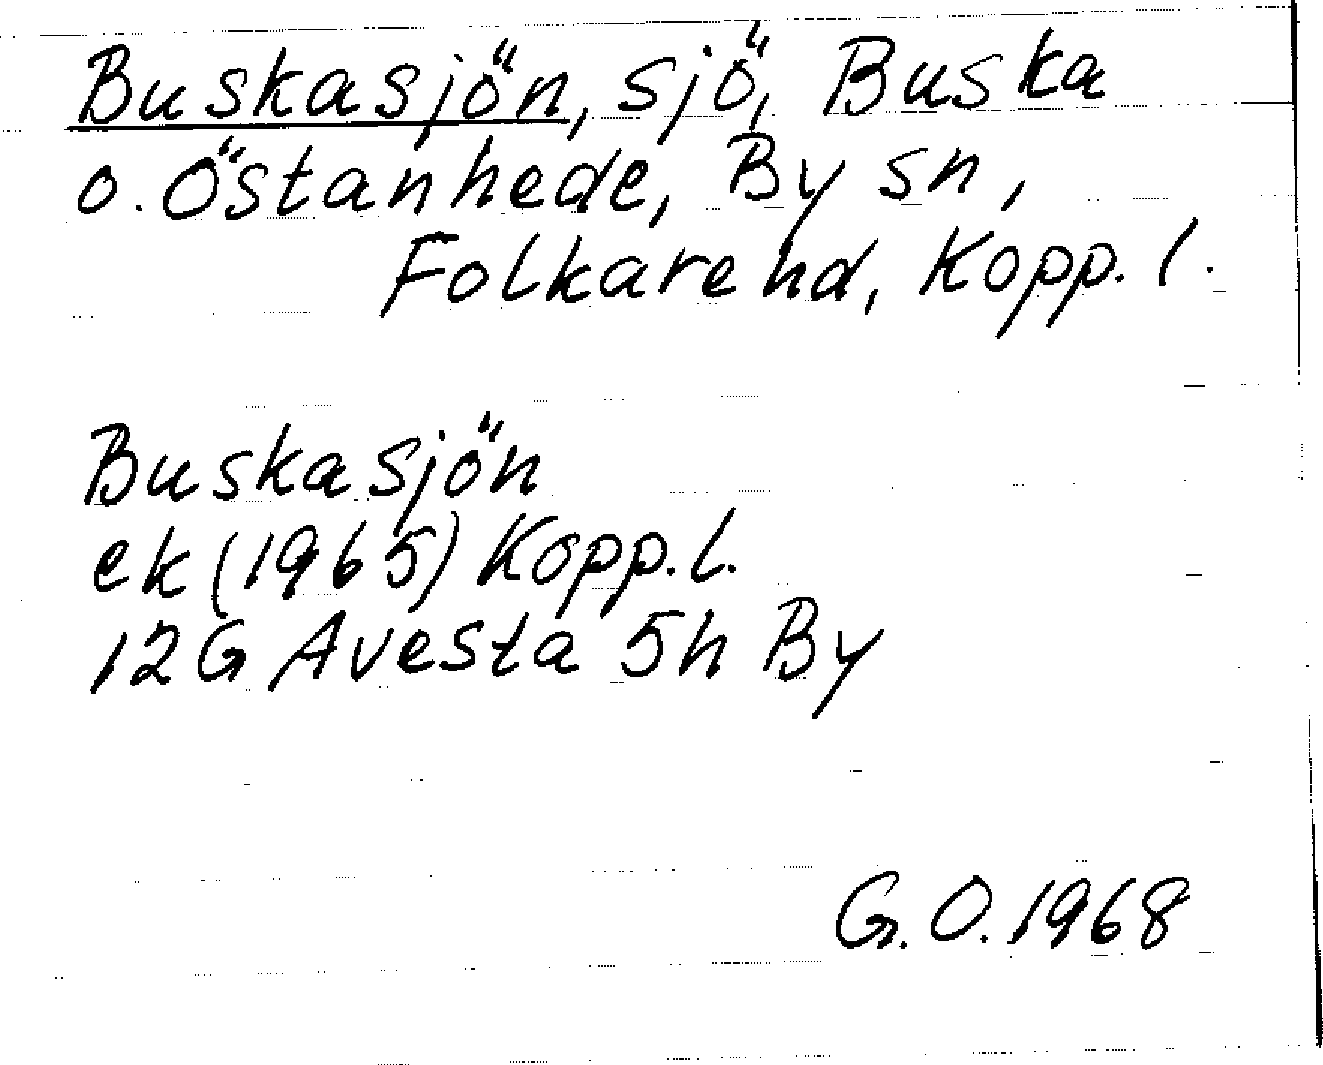 Buskasjön, sjö, Buska
o. Östanhede, By sn,
Folkare hd, Kopp. l.
Buskasjön
ek (1965) Kopp. l.
12G Avesta 5h By
G. O. 1968